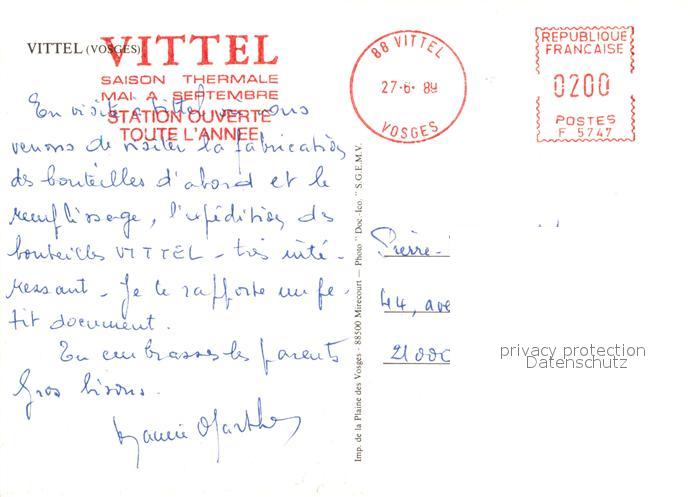 VITTEL (VOSGES)
VITTEL
SAISON THERMALE
MAI A SEPTEMBRE
STATION OUVERTE
TOUTE L'ANNEE
88 VITTEL
27-6- 89
VOSGES
REPUBLIQUE
FRANCAISE
0200
POSTES
F 5747
En visite à Vittel nous
venons de visiter la fabrication
des bouteilles d'abord et le
remplissage, l'expédition des
bouteilles VITTEL - très inté-
ressant - Je te rapporte un pe-
tit document.
En embrasses les parents
Gros bisous.
Marthe
Imp. de la Plaine des Vosges - 88500 Mirecourt — Photo "Doc.-Ico." S.G.E.M.V.
Pierre-
44, ave
21000
privacy protection
Datenschutz